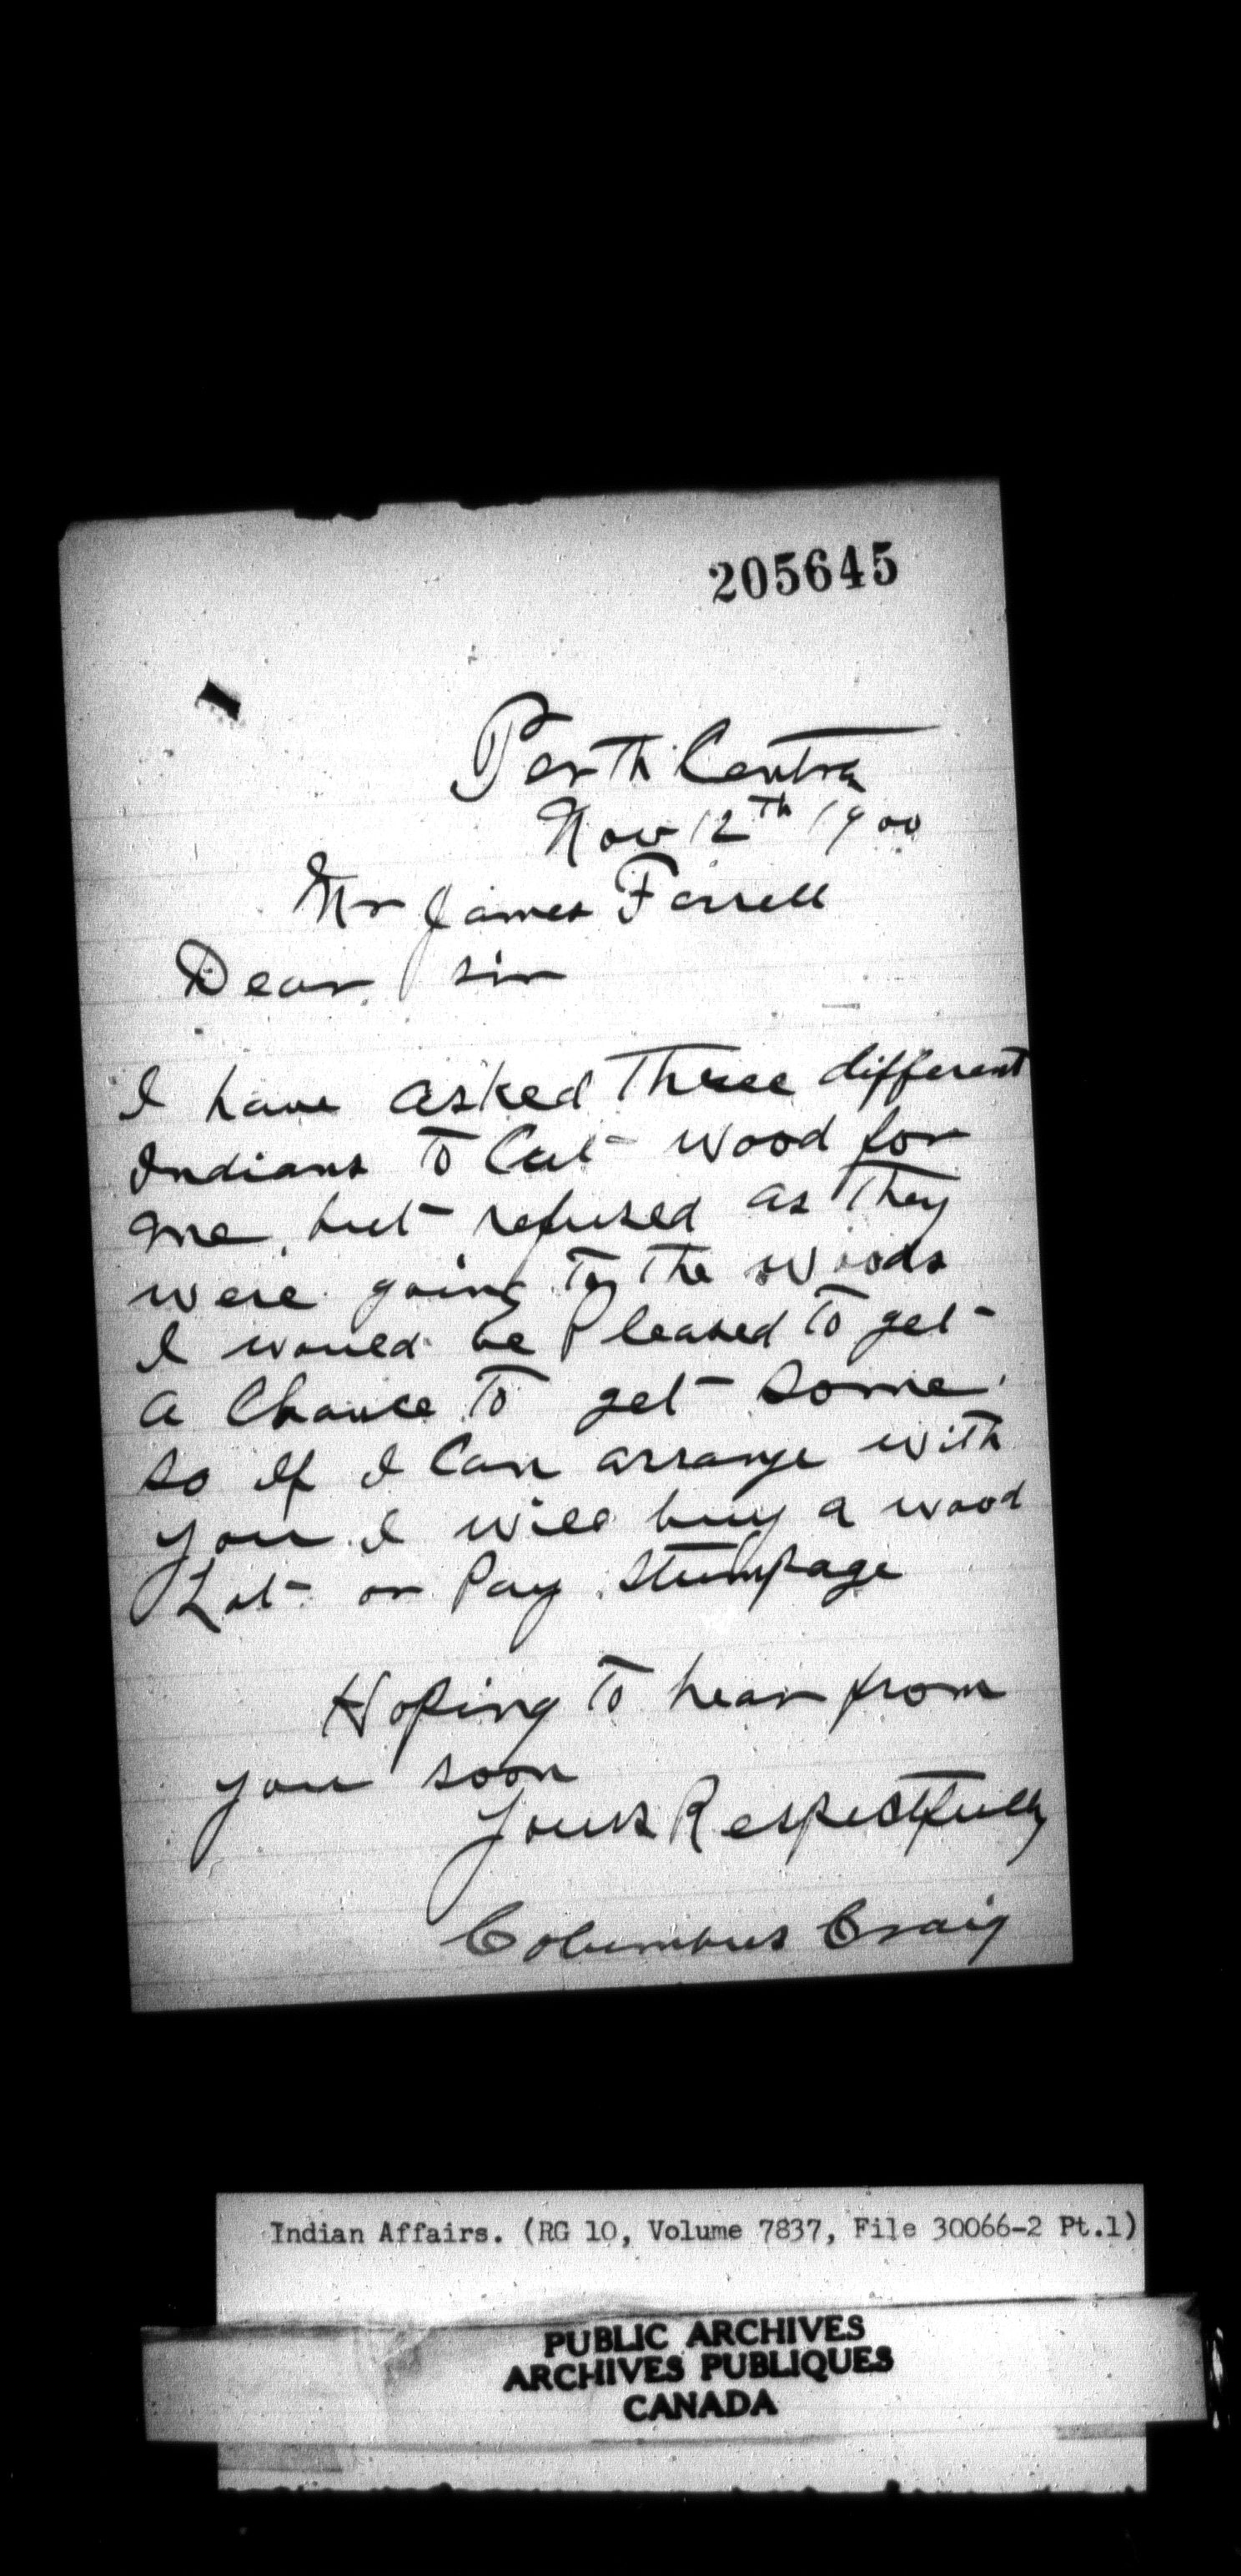 205645
Perth Centre
Nov 12th 1900
Mr James Farrell
Dear Sir
I have asked three different
Indians to Cut wood for
me but refused as they
were going to the woods
I would be Pleased to get
a Chance to get some
so If I Can arrange with
you I will buy a wood
Lot or Pay stumpage
Hoping to hear from
you soon
Yours Respectfully
Columbus Craig
Indian Affairs. (RG 10, Volume 7837, File 30066-2 Pt.1)
PUBLIC ARCHIVES
ARCHIVES PUBLIQUES
CANADA